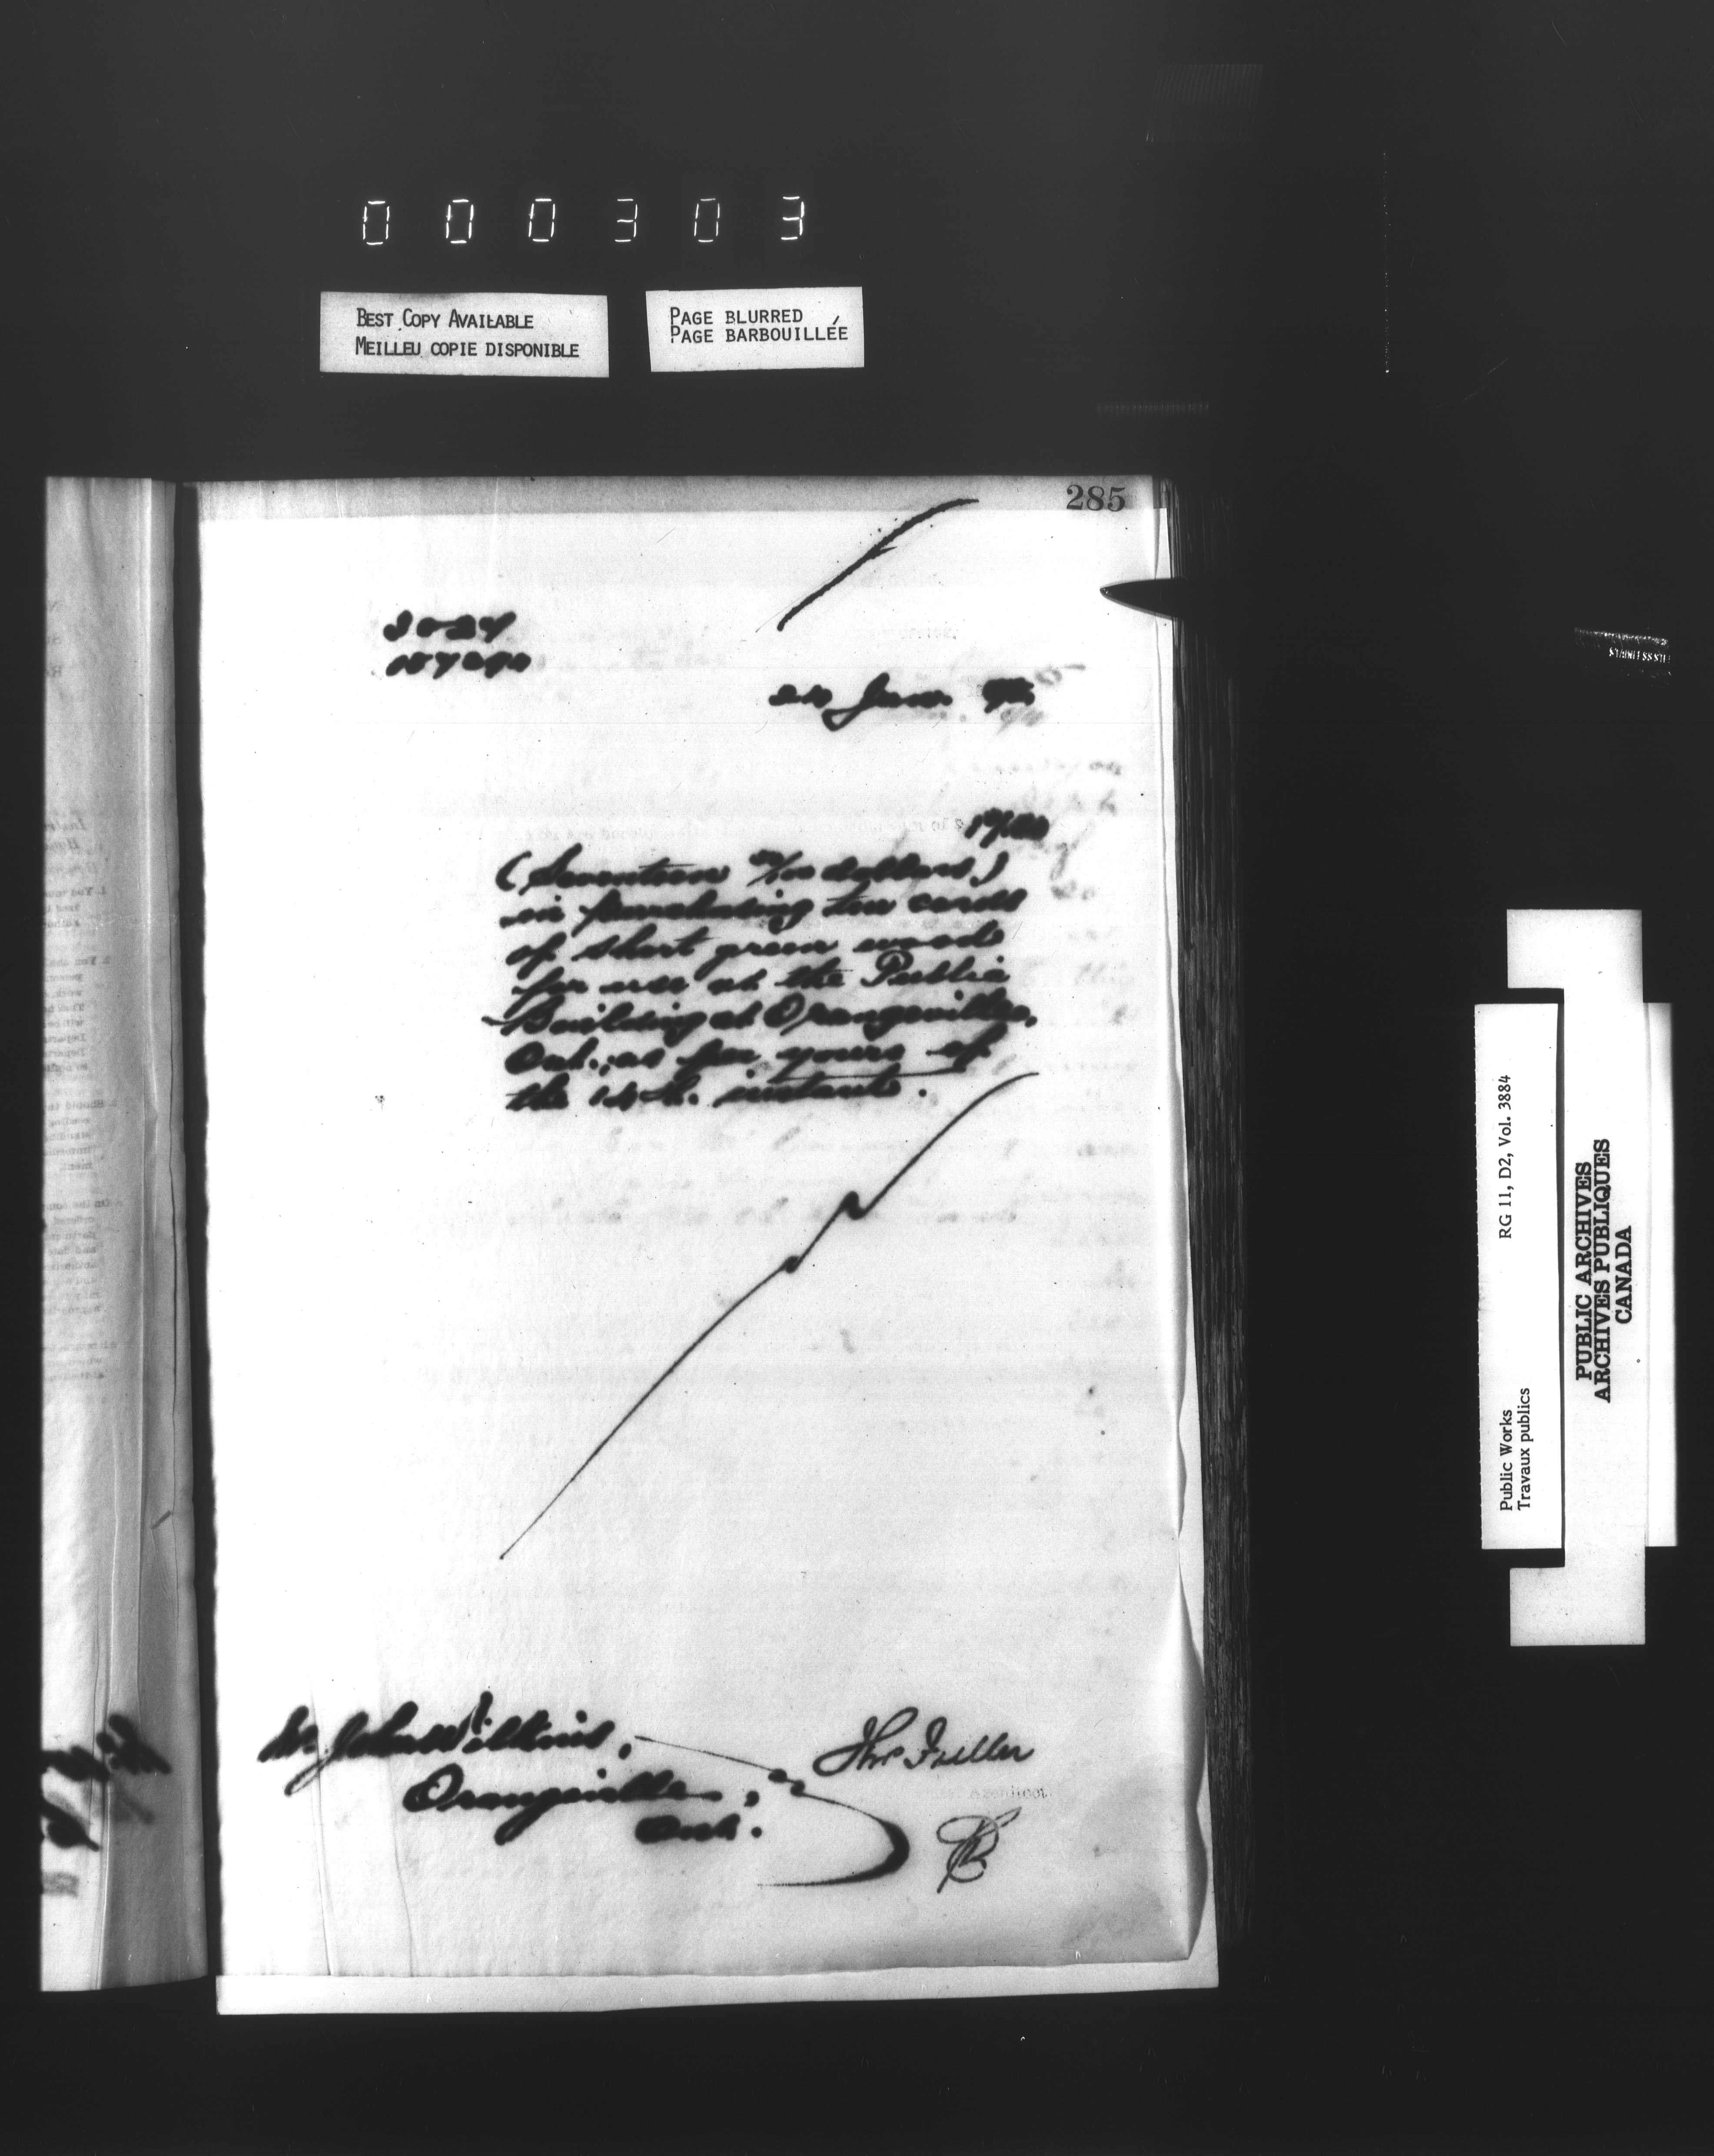 000303
BEST COPY AVAILABLE
MEILLEU COPIE DISPONIBLE
PAGE BLURRED
PAGE BARBOUILLÉE
285
Jan.
17.00
(Seventeen 00/100 dollars)
in purchasing ten cords
of short green wood
for use at the Public
Building at Orangeville,
Ont., as per yours of
the 14th. instant.
Mr. John Wilkins,
Orangeville,
Ont.
Thos Fuller
Architect
Public Works
Travaux publics
RG 11, D2, Vol. 3884
PUBLIC ARCHIVES
ARCHIVES PUBLIQUES
CANADA